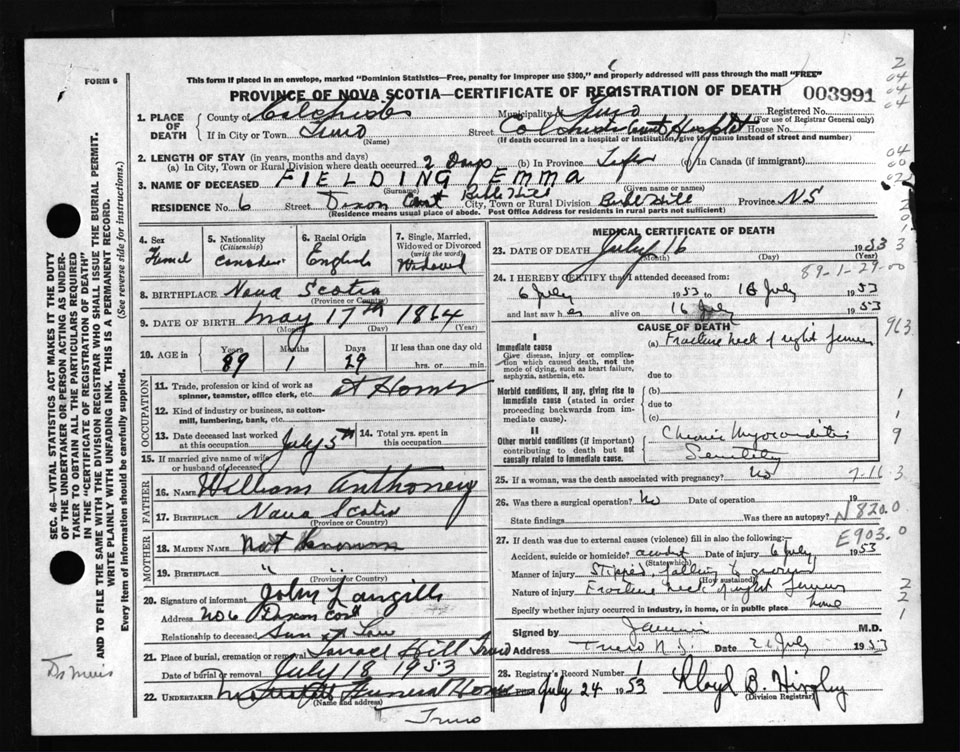 FORM 6
This form if placed in an envelope, marked "Dominion Statistics—Free, penalty for improper use $300," and properly addressed will pass through the mail "FREE"
PROVINCE OF NOVA SCOTIA—CERTIFICATE OF REGISTRATION OF DEATH 003991
1. PLACE OF DEATH County of Colchester Municipality of Truro Registered No.
(For use of Registrar General only)
If in City or Town Truro Street Hospital House No.
(Name) (If death occurred in a hospital or institution, give the name instead of street and number)
2. LENGTH OF STAY (in years, months and days)
(a) In City, Town or Rural Division where death occurred 2 Days (b) In Province Life (c) In Canada (if immigrant)
3. NAME OF DECEASED FIELDING EMMA
(Surname) (Given name or names)
RESIDENCE No. 6 Street Dixon Court Bible Hill City, Town or Rural Division Bible Hill Province N S
(Residence means usual place of abode. Post Office Address for residents in rural parts not sufficient)
4. Sex
5. Nationality (Citizenship)
6. Racial Origin English
7. Single, Married, Widowed or Divorced (write the word) Widowed
8. BIRTHPLACE Nova Scotia
(Province or Country)
9. DATE OF BIRTH May 17th 1864
(Month) (Day) (Year)
10. AGE in Years Months Days If less than one day old
89 1 29 hrs. or min.
OCCUPATION
11. Trade, profession or kind of work as spinner, teamster, office clerk, etc. At Home
12. Kind of industry or business, as cotton-mill, lumbering, bank, etc.
13. Date deceased last worked at this occupation July 5th 14. Total yrs. spent in this occupation
15. If married give name of wife or husband of deceased
FATHER
16. NAME William Anthoney
17. BIRTHPLACE Nova Scotia
(Province or Country)
MOTHER
18. MAIDEN NAME Not Known
19. BIRTHPLACE " "
(Province or Country)
20. Signature of informant John Langille
Address No 6 Dixon Court
Relationship to deceased Sun in Law
21. Place of burial, cremation or removal Terrace Hill Truro
Date of burial or removal July 18 1953
22. UNDERTAKER Funeral Home
(Name and address)
Truro
MEDICAL CERTIFICATE OF DEATH
23. DATE OF DEATH July 16 1953
(Month) (Day) (Year)
89-1-29-00
24. I HEREBY CERTIFY that I attended deceased from:
6 July 1953 to 16 July 1953
and last saw her alive on 16 July 1953
CAUSE OF DEATH
I
Immediate cause
Give disease, injury or complication which caused death, not the mode of dying, such as heart failure, asphyxia, asthenia, etc.
(a) Fracture neck of right femur
due to
Morbid conditions, if any, giving rise to immediate cause (stated in order proceeding backwards from immediate cause).
(b)
due to
(c)
II
Other morbid conditions (if important) contributing to death but not causally related to immediate cause.
Chronic Myocarditis
Senility
25. If a woman, was the death associated with pregnancy? No
26. Was there a surgical operation? No Date of operation 19
State findings Was there an autopsy?
N820.0
27. If death was due to external causes (violence) fill in also the following: E903.0
Accident, suicide or homicide? accident Date of injury 6 July 1953
(State which)
Manner of injury Slipped, falling to ground
(How sustained)
Nature of injury Fracture neck of right femur
Specify whether injury occurred in industry, in home, or in public place home
Signed by M.D.
Address Truro N.S. Date 21 July 1953
28. Registrar's Record Number 1
July 24 1953 Lloyd B.
(Division Registrar)
SEC. 46—VITAL STATISTICS ACT MAKES IT THE DUTY OF THE UNDERTAKER OR PERSON ACTING AS UNDERTAKER TO OBTAIN ALL THE PARTICULARS REQUIRED IN THE "CERTIFICATE OF REGISTRATION OF DEATH" AND TO FILE THE SAME WITH THE DIVISION REGISTRAR WHO SHALL ISSUE THE BURIAL PERMIT.
WRITE PLAINLY WITH UNFADING INK. THIS IS A PERMANENT RECORD.
Every item of information should be carefully supplied. (See reverse side for instructions.)